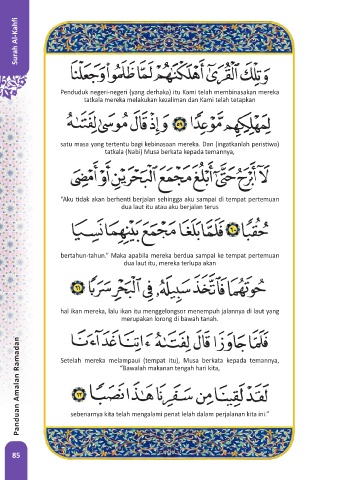 Surah Al-Kahfi
وَتِلْكَ ٱلْقُرَىٰٓ أَهْلَكْنَٰهُمْ لَمَّا ظَلَمُوا۟ وَجَعَلْنَا
Penduduk negeri-negeri (yang derhaka) itu Kami telah membinasakan mereka
tatkala mereka melakukan kezaliman dan Kami telah tetapkan
لِمَهْلِكِهِم مَّوْعِدًا ٥٩ وَإِذْ قَالَ مُوسَىٰ لِفَتَىٰهُ
satu masa yang tertentu bagi kebinasaan mereka. Dan (ingatkanlah peristiwa)
tatkala (Nabi) Musa berkata kepada temannya,
لَآ أَبْرَحُ حَتَّىٰٓ أَبْلُغَ مَجْمَعَ ٱلْبَحْرَيْنِ أَوْ أَمْضِىَ
"Aku tidak akan berhenti berjalan sehingga aku sampai di tempat pertemuan
dua laut itu atau aku berjalan terus
حُقُبًا ٦٠ فَلَمَّا بَلَغَا مَجْمَعَ بَيْنِهِمَا نَسِيَا
bertahun-tahun." Maka apabila mereka berdua sampai ke tempat pertemuan
dua laut itu, mereka terlupa akan
حُوتَهُمَا فَٱتَّخَذَ سَبِيلَهُۥ فِى ٱلْبَحْرِ سَرَبًا ٦١
hal ikan mereka, lalu ikan itu menggelongsor menempuh jalannya di laut yang
merupakan lorong di bawah tanah.
فَلَمَّا جَاوَزَا قَالَ لِفَتَىٰهُ ءَاتِنَا غَدَآءَنَا
Setelah mereka melampaui (tempat itu), Musa berkata kepada temannya,
"Bawalah makanan tengah hari kita,
لَقَدْ لَقِينَا مِن سَفَرِنَا هَٰذَا نَصَبًا ٦٢
sebenarnya kita telah mengalami penat lelah dalam perjalanan kita ini."
Panduan Amalan Ramadan
85